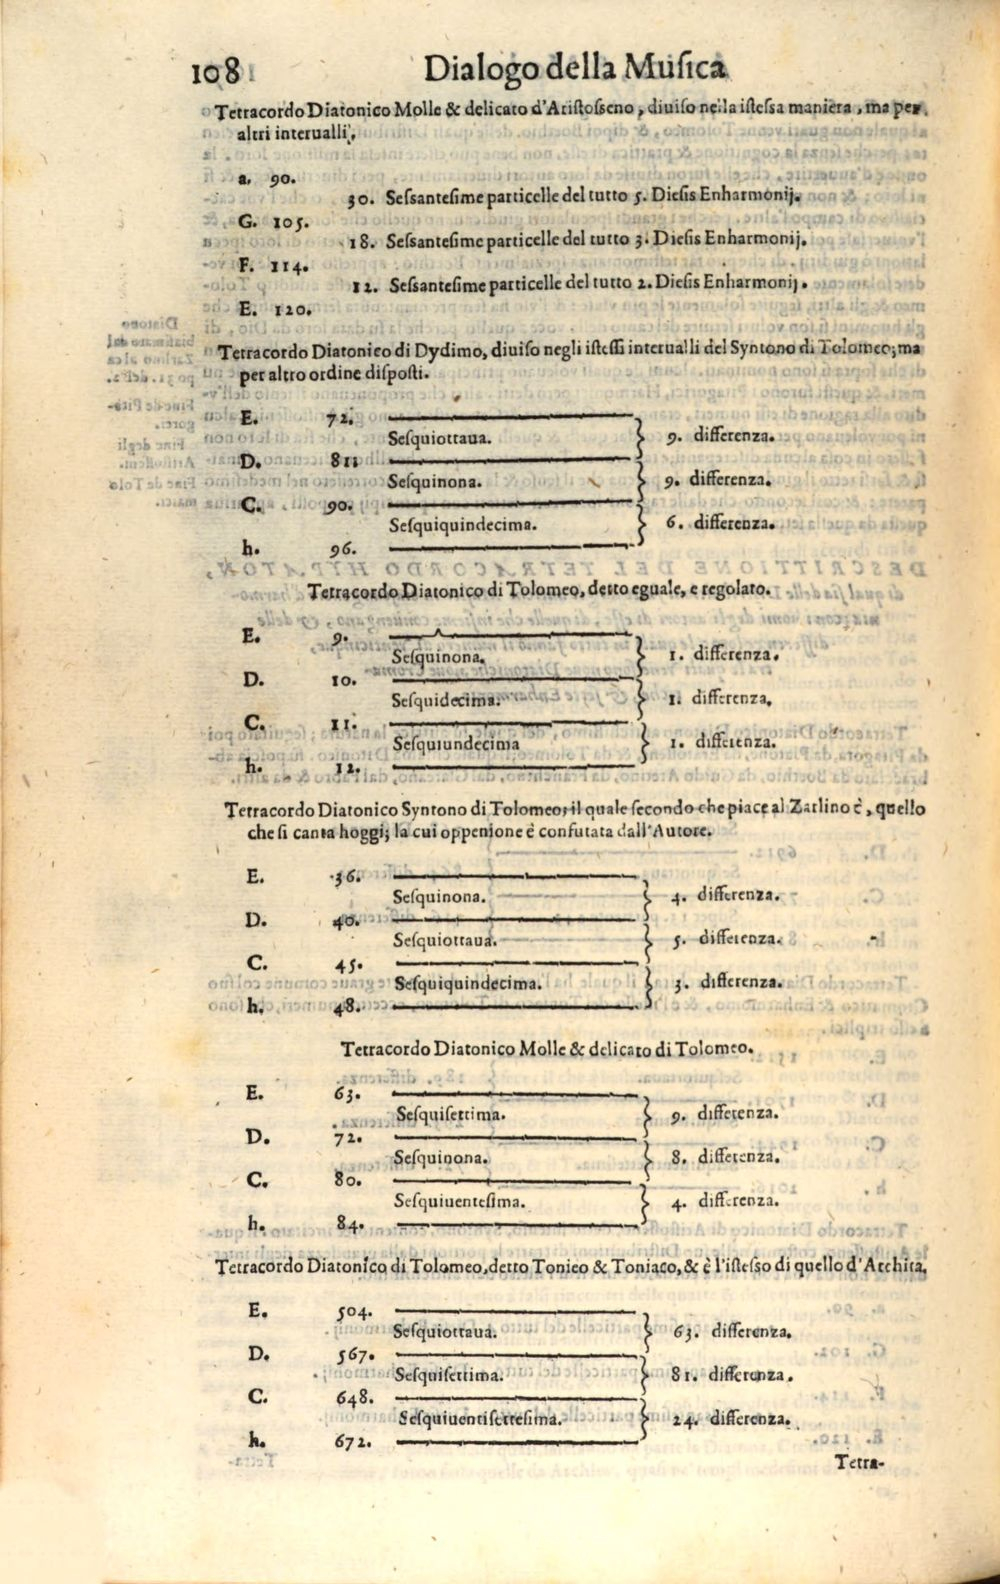 108 Dialogo della Musica
Tetracordo Diatonico Molle & delicato d'Aristosseno, diuiso nella istessa maniera, ma per
altri interualli.
a. 90.
30. Sessantesime particelle del tutto 5. Diesis Enharmonij.
G. 105.
18. Sessantesime particelle del tutto 3. Diesis Enharmonij.
F. 114.
12. Sessantesime particelle del tutto 2. Diesis Enharmonij.
E. 120.
Tetracordo Diatonico di Dydimo, diuiso negli istessi interualli del Syntono di Tolomeo; ma
per altro ordine disposti.
E. 72.
Sesquiottaua. 9. differenza.
D. 81
Sesquinona. 9. differenza.
C. 90.
Sesquiquindecima. 6. differenza.
h. 96.
Tetracordo Diatonico di Tolomeo, detto eguale, e regolato.
E. 9.
Sesquinona. 1. differenza.
D. 10.
Sesquidecima. 1. differenza.
C. 11.
Sesquiundecima 1. differenza.
h. 12.
Tetracordo Diatonico Syntono di Tolomeo; il quale secondo che piace al Zarlino è, quello
che si canta hoggi; la cui oppenione è confutata dall'Autore.
E. 36.
Sesquinona. 4. differenza.
D. 40.
Sesquiottaua. 5. differenza.
C. 45.
Sesquiquindecima. 3. differenza.
h. 48.
Tetracordo Diatonico Molle & delicato di Tolomeo.
E. 63.
Sesquisettima. 9. differenza.
D. 72.
Sesquinona. 8. differenza.
C. 80.
Sesquiuentesima. 4. differenza.
h. 84.
Tetracordo Diatonico di Tolomeo, detto Tonico & Toniaco, & è l'istesso di quello d'Archita.
E. 504.
Sesquiottaua. 63. differenza.
D. 567.
Sesquisettima. 81. differenza.
C. 648.
Sesquiuentisettesima. 24. differenza.
h. 672.
Tetra-